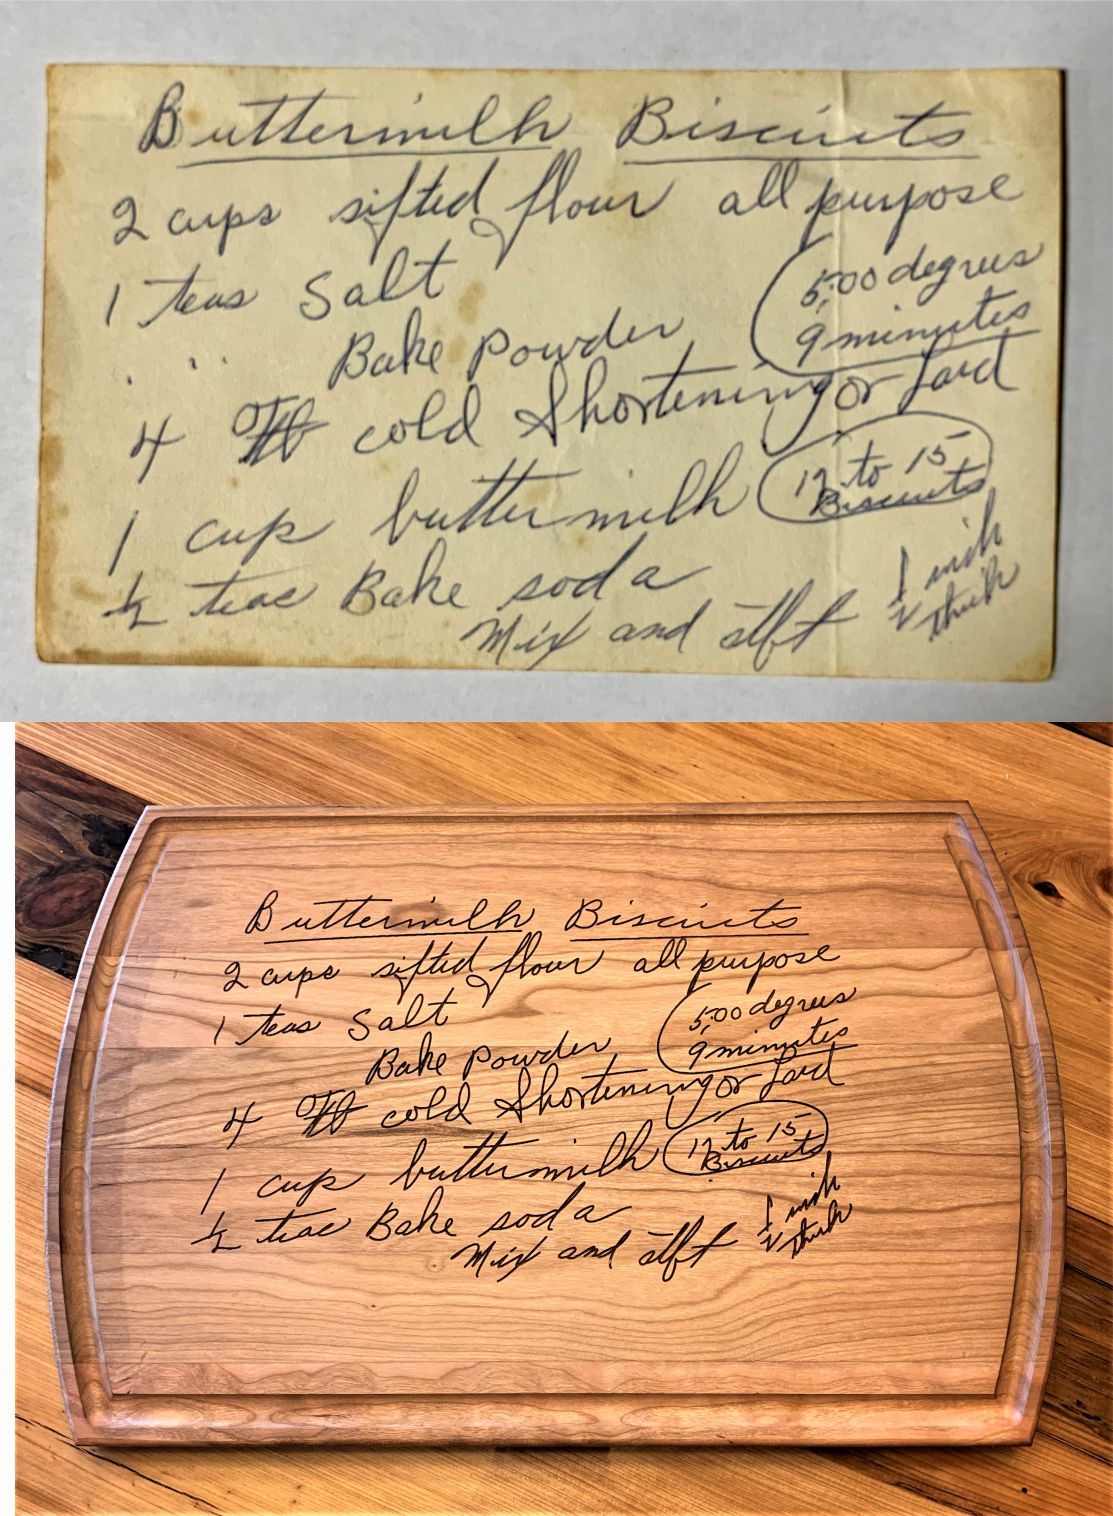 Buttermilk Biscuits
2 cups sifted flour all purpose
1 teas Salt
500 degrees
9 minutes
" " Bake Powder
4 cold Shortening or Lard
1 cup buttermilk
12 to 15
Biscuits
1/2 teas Bake soda
1/2 inch
thick
Mix and
Buttermilk Biscuits
2 cups sifted flour all purpose
1 teas Salt
500 degrees
9 minutes
Bake Powder
4 cold Shortening or Lard
1 cup buttermilk
12 to 15
Biscuits
1/2 teas Bake soda
1/2 inch
thick
Mix and